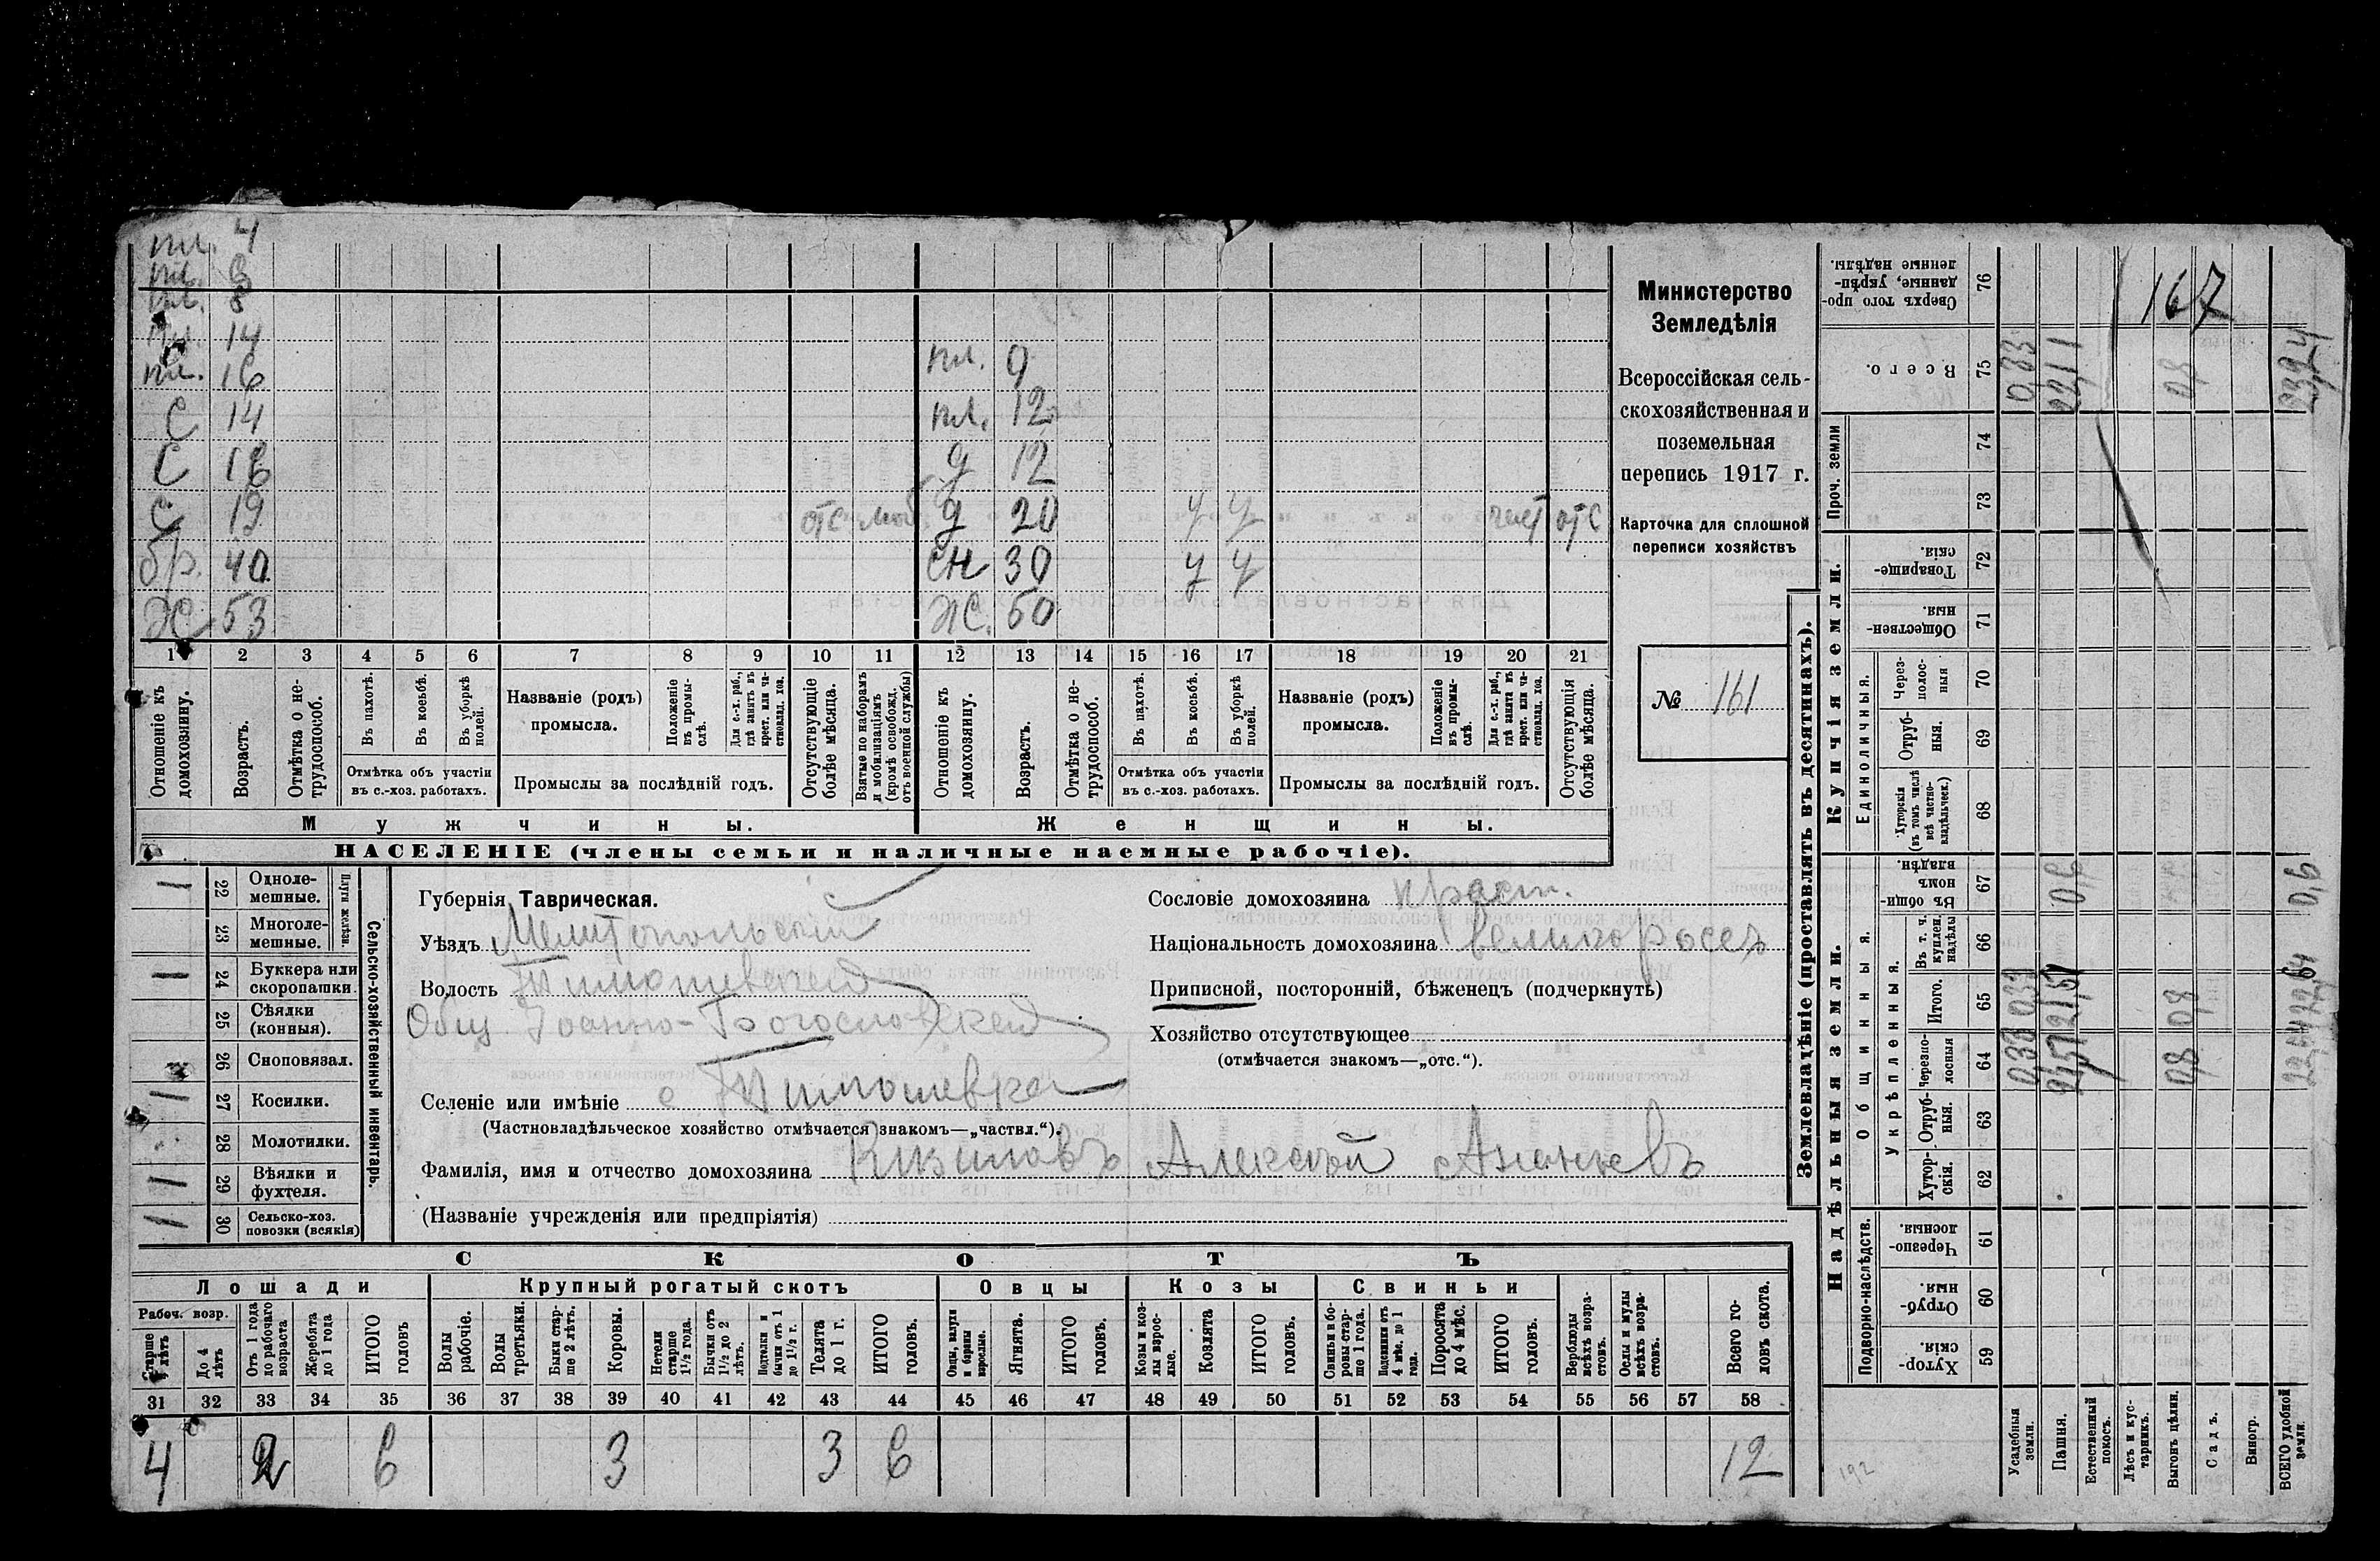 пл. 4
пл. 6
пл. 8
пл. 14
пл. 16
пл. 9
С 14
пл. 12
С 16
д 12
С 19
отс
моб
д 20
у у
отс
бр. 40
сн 30
у у
Х 53
Ж. 50
1 2 3 4 5 6 7 8 9 10 11 12 13 14 15 16 17 18 19 20 21
Отношеніе къ домохозяину.
Возрастъ.
Отмѣтка о не-трудоспособ.
Въ пахотѣ.
Въ косьбѣ.
Въ уборкѣ полей.
Отмѣтка объ участіи въ с.-хоз. работахъ.
Названіе (родъ) промысла.
Положеніе въ промы-слѣ.
Для с.-х. раб., гдѣ занятъ въ крест. или ча-стновлад. хоз.
Промыслы за послѣдній годъ.
Отсутствующіе болѣе мѣсяца.
Взятые по наборамъ и мобилизаціямъ (кромѣ освобожд. отъ военной службы)
Отношеніе къ домохозяину.
Возрастъ.
Отмѣтка о не-трудоспособ.
Въ пахотѣ.
Въ косьбѣ.
Въ уборкѣ полей.
Отмѣтка объ участіи въ с.-хоз. работахъ.
Названіе (родъ) промысла.
Положеніе въ промы-слѣ.
Для с.-х. раб., гдѣ занятъ въ крест. или ча-стновлад. хоз.
Промыслы за послѣдній годъ.
Отсутствующія болѣе мѣсяца.
Мужчины.
Женщины.
НАСЕЛЕНІЕ (члены семьи и наличные наемные рабочіе).
Министерство
Земледѣлія
Всероссійская сель-
скохозяйственная и
поземельная
перепись 1917 г.
Карточка для сплошной
переписи хозяйствъ
№ 161
1 22 Одноле-мешные.
23 Многоле-мешные.
Плуги желѣзн.
1 24 Буккера или скоропашки.
25 Сѣялки (конныя).
26 Сноповязал.
1 27 Косилки.
28 Молотилки.
1 29 Вѣялки и фухтеля.
1 30 Сельско-хоз. повозки (всякія)
Сельско-хозяйственный инвентарь.
Губернія Таврическая.
Уѣздъ Мелитопольскій
Волость Тимошевской
Общ. Іоанно-Богословской
Селеніе или имѣніе с Тимошевка
(Частновладѣльческое хозяйство отмѣчается знакомъ—„частвл.“).
Фамилія, имя и отчество домохозяина Кизиловъ Алексѣй Ананьевъ
(Названіе учрежденія или предпріятія)
Сословіе домохозяина крест.
Національность домохозяина великороссъ
Приписной, посторонній, бѣженецъ (подчеркнуть)
Хозяйство отсутствующее
(отмѣчается знакомъ—„отс.“).
СКОТЪ
Лошади
Крупный рогатый скотъ
Овцы
Козы
Свиньи
Рабоч. возр.
Старше 4 лѣтъ
До 4 лѣтъ
Отъ 1 года до рабочаго возраста
Жеребята до 1 года
ИТОГО головъ
Волы рабочіе.
Волы третьяки.
Быки стар-ше 2 лѣтъ.
Коровы.
Нетели старше 1½ года.
Бычки отъ 1½ до 2 лѣтъ.
Подтелки и бычки отъ 1 до 1½ г.
Телята до 1 г.
ИТОГО головъ.
Овцы, валухи и бараны взрослые.
Ягнята.
ИТОГО головъ.
Козы и коз-лы взрос-лые.
Козлята
ИТОГО головъ.
Свиньи и бо-ровы стар-ше 1 года.
Подсвинки отъ 4 мѣс. до 1 года.
Поросята до 4 мѣс.
ИТОГО головъ.
Верблюды всѣхъ возра-стовъ.
Ослы и мулы всѣхъ возра-стовъ.
Всего го-ловъ скота.
31 32 33 34 35 36 37 38 39 40 41 42 43 44 45 46 47 48 49 50 51 52 53 54 55 56 57 58
4 2 6 3 3 6 12
Землевладѣніе (проставлять въ десятинахъ).
Купчія земли.
Надѣльныя земли.
Проч. земли
Единоличныя.
Общинныя.
Укрѣпленныя.
Подворно-наслѣдств.
Сверхъ того про-данные, укрѣп-ленные надѣлы. 76
Всего. 75
74
73
Товарище-скія. 72
Обществен-ныя. 71
Через-полос-ныя 70
Отруб-ныя. 69
Хуторскія (въ томъ числѣ всѣ частно-владѣльческ.) 68
Въ общин-номъ владѣн. 67
Въ т. ч. куплен. надѣлы 66
Итого. 65
Черезпо-лосныя 64
Отруб-ныя. 63
Хутор-скія. 62
Черезпо-лосныя 61
Отруб-ныя. 60
Хутор-скія. 59
Усадебныя земли.
Пашня.
Естественный покосъ.
Лѣсъ и кус-тарникъ.
Выгонъ цѣлин.
Садъ.
Виногр.
ВСЕГО удобной земли.
167
0,33
22,11
0,8
0,6
0,6
0,33 0,33
21,51 21,51
0,8 0,8
192